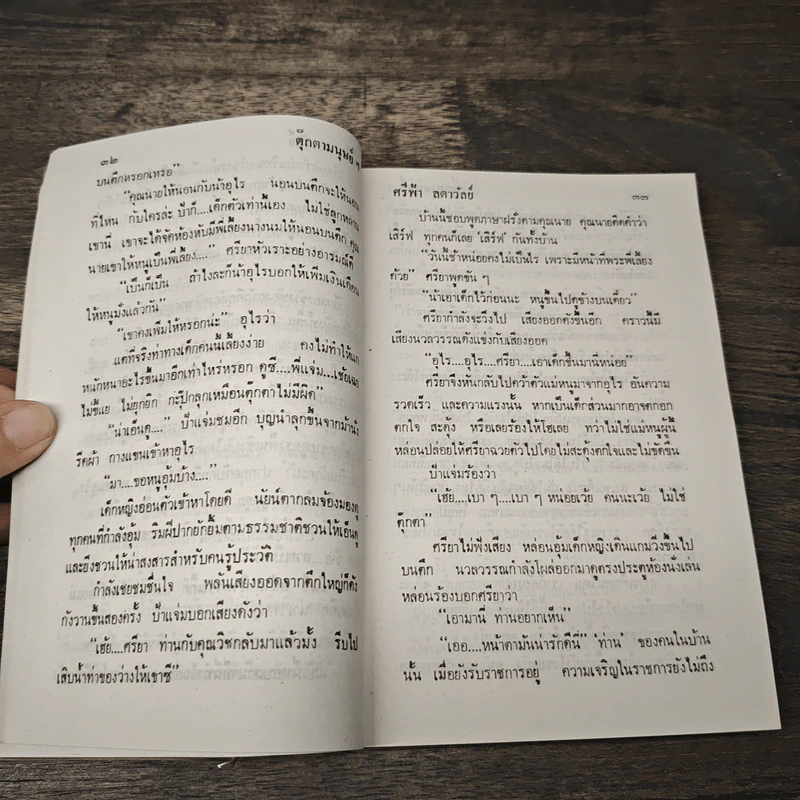 ๓๒
ตุ๊กตามนุษย์ ๆ
บนตึกหรอกเหรอ"
"คุณนายให้นอนกับน้าอุไร นอนบนตึกจะให้นอน
ที่ไหน กับใครล่ะ ป้าก็....เด็กตัวเท่านี้เอง ไม่ใช่ลูกหลาน
เขานี่ เขาจะได้จัดห้องหับมีพี่เลี้ยงนางนมให้นอนบนตึก คุณ
นายเขาให้หนูเป็นพี่เลี้ยง...." ศรียาหัวเราะอย่างอารมณ์ดี
"เป็นก็เป็น ถ้าไงล่ะก็น้าอุไรบอกให้เพิ่มเงินเดือน
ให้หนูมั่งแล้วกัน"
"เขาคงเพิ่มให้หรอกน่ะ" อุไรว่า
แต่ที่จริงท่าทางเด็กคนนี้เลี้ยงง่าย คงไม่ทำให้แก
หนักหนาอะไรขึ้นมาอีกเท่าไหร่หรอก ดูซี....พี่แจ่ม...เชื่อเฉย
ไม่ขี้แย ไม่ยุกยิก กะปุ๊กลุกเหมือนตุ๊กตาไม่มีผิด"
"น่าเอ็นดู...." ป้าแจ่มชมอีก บุญนำลุกขึ้นจากม้านั่ง
รีดผ้า กางแขนเข้าหาอุไร
"มา....ขอหนูอุ้มบ้าง...."
เด็กหญิงอ่อนตัวเข้าหาโดยดี นัยน์ตากลมจ้องมองดู
ทุกคนที่กำลังอุ้ม ริมฝีปากยักยิ้มตามธรรมชาติชวนให้เอ็นดู
และยิ่งชวนให้น่าสงสารสำหรับคนรู้ประวัติ
กำลังเชยชมชื่นใจ พลันเสียงออดจากตึกใหญ่ก็ดัง
กังวานขึ้นสองครั้ง ป้าแจ่มบอกเสียงดังว่า
"เฮ้ย....ศรียา ท่านกับคุณวิชกลับมาแล้วมั้ง รีบไป
เสิบน้ำท่าของว่างให้เขาซี"
ศรีฟ้า ลดาวัลย์
๓๓
บ้านนี้ชอบพูดภาษาฝรั่งตามคุณนาย คุณนายติดคำว่า
เสิร์ฟ ทุกคนก็เลย 'เสิร์ฟ' กันทั้งบ้าน
"วันนี้ช้าหน่อยคงไม่เป็นไร เพราะมีหน้าที่พระพี่เลี้ยง
ด้วย" ศรียาพูดขัน ๆ
"น้าเอาเด็กไว้ก่อนนะ หนูขึ้นไปดูข้างบนเดี๋ยว"
ศรียากำลังจะวิ่งไป เสียงออดดังขึ้นอีก คราวนี้มี
เสียงนวลวรรณดังแข่งกับเสียงออด
"อุไร....อุไร....ศรียา....เอาเด็กขึ้นมานี่หน่อย"
ศรียาจึงหันกลับไปคว้าตัวแม่หนูมาจากอุไร อันความ
รวดเร็ว และความแรงนั้น หากเป็นเด็กส่วนมากอาจตกอก
ตกใจ สะดุ้ง หรือเลยร้องไห้โฮเลย ทว่าไม่ใช่แม่หนูผู้นี้
หล่อนปล่อยให้ศรียาฉวยตัวไปโดยไม่สะดุ้งตกใจและไม่ขัดขืน
ป้าแจ่มร้องว่า
"เฮ้ย....เบา ๆ....เบา ๆ หน่อยเว้ย คนนะเว้ย ไม่ใช่
ตุ๊กตา"
ศรียาไม่ฟังเสียง หล่อนอุ้มเด็กหญิงเดินแกมวิ่งขึ้นไป
บนตึก นวลวรรณกำลังโผล่ออกมาดูตรงประตูห้องนั่งเล่น
หล่อนร้องบอกศรียาว่า
"เอามานี่ ท่านอยากเห็น"
"เออ....หน้าตามันน่ารักดีนี่" 'ท่าน' ของคนในบ้าน
นั้น เมื่อยังรับราชการอยู่ ความเจริญในราชการยังไม่ถึง